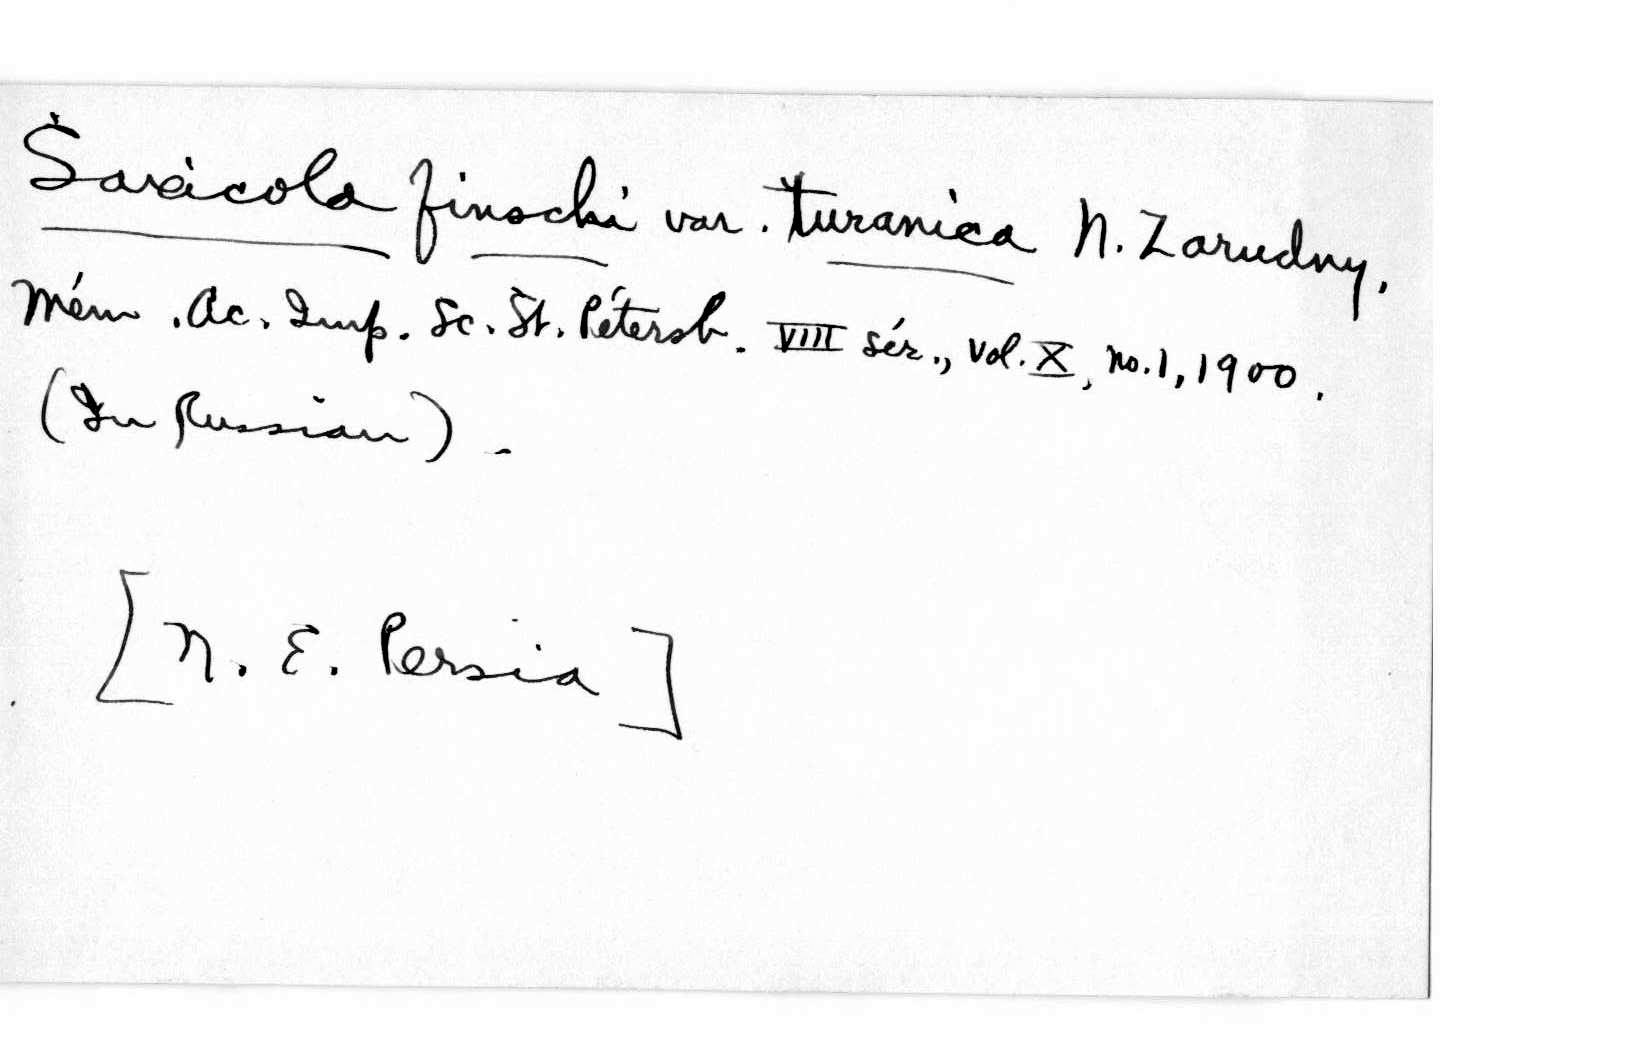 Saxicola finschi var. turanica N. Zarudny,
Mém. Ac. Imp. Sc. St. Pétersb. VIII sér., vol. X, no. 1, 1900.
(In Russian).
[N. E. Persia]